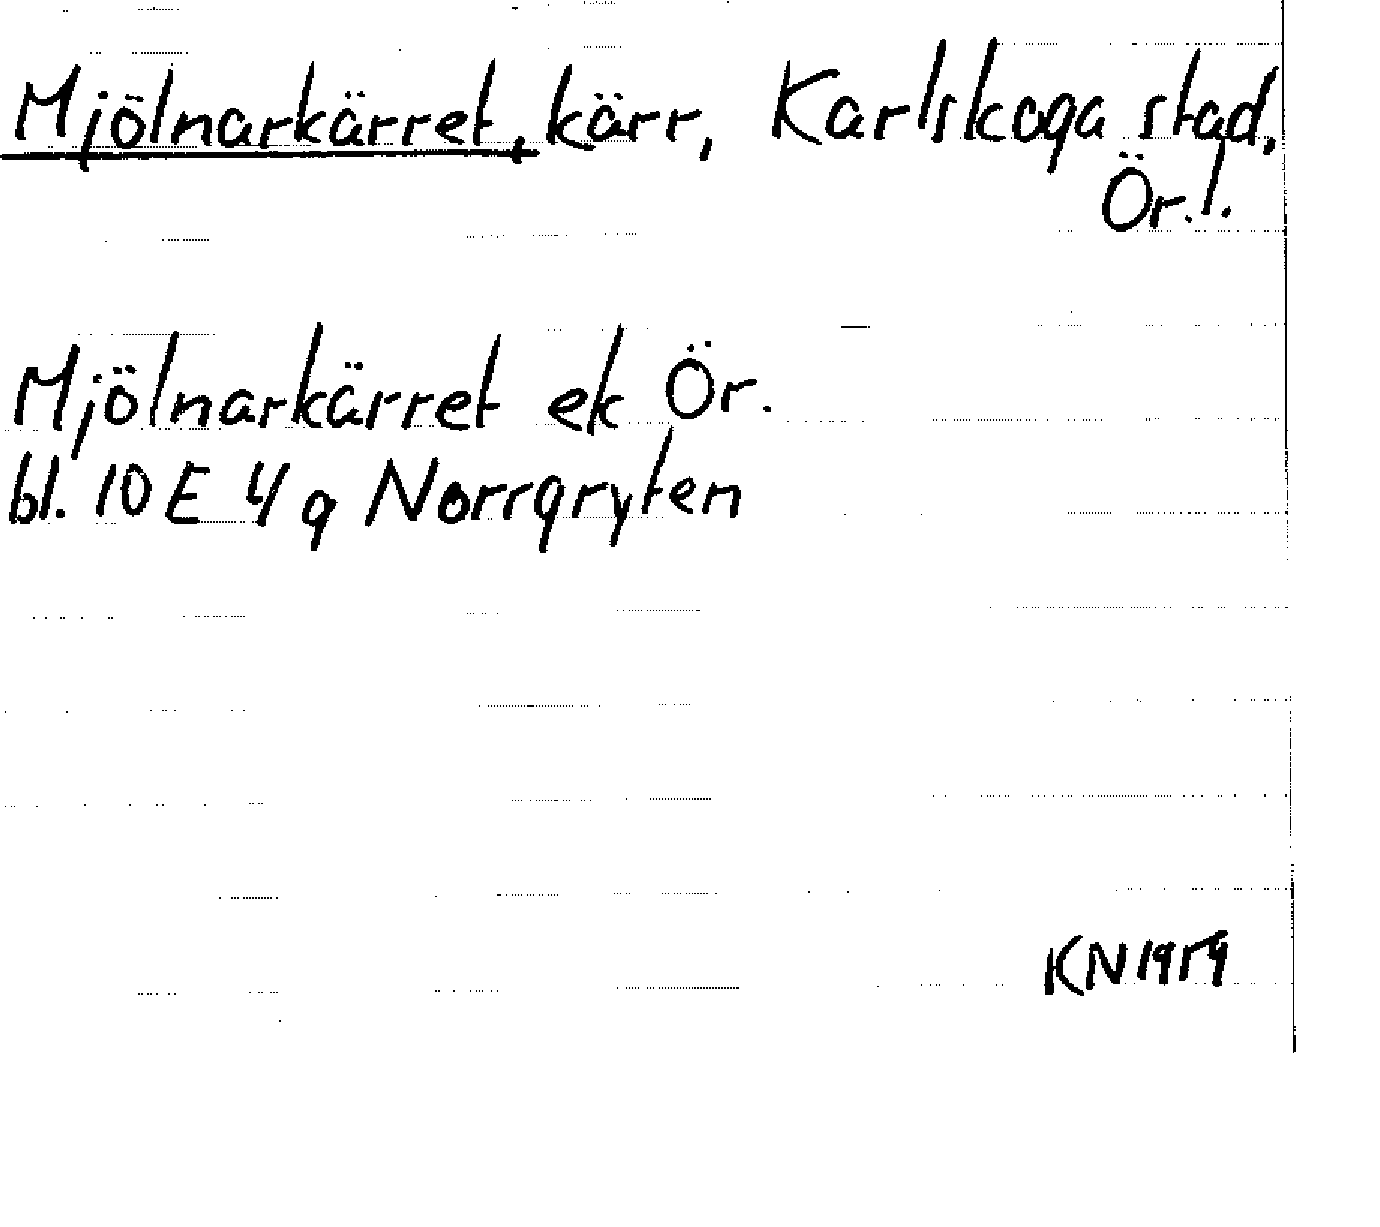 Mjölnarkärret, kärr, Karlskoga stad,
Ör.l.
Mjölnarkärret ek Ör.
bl. 10 E 4 g Norrgryten
KN 1959